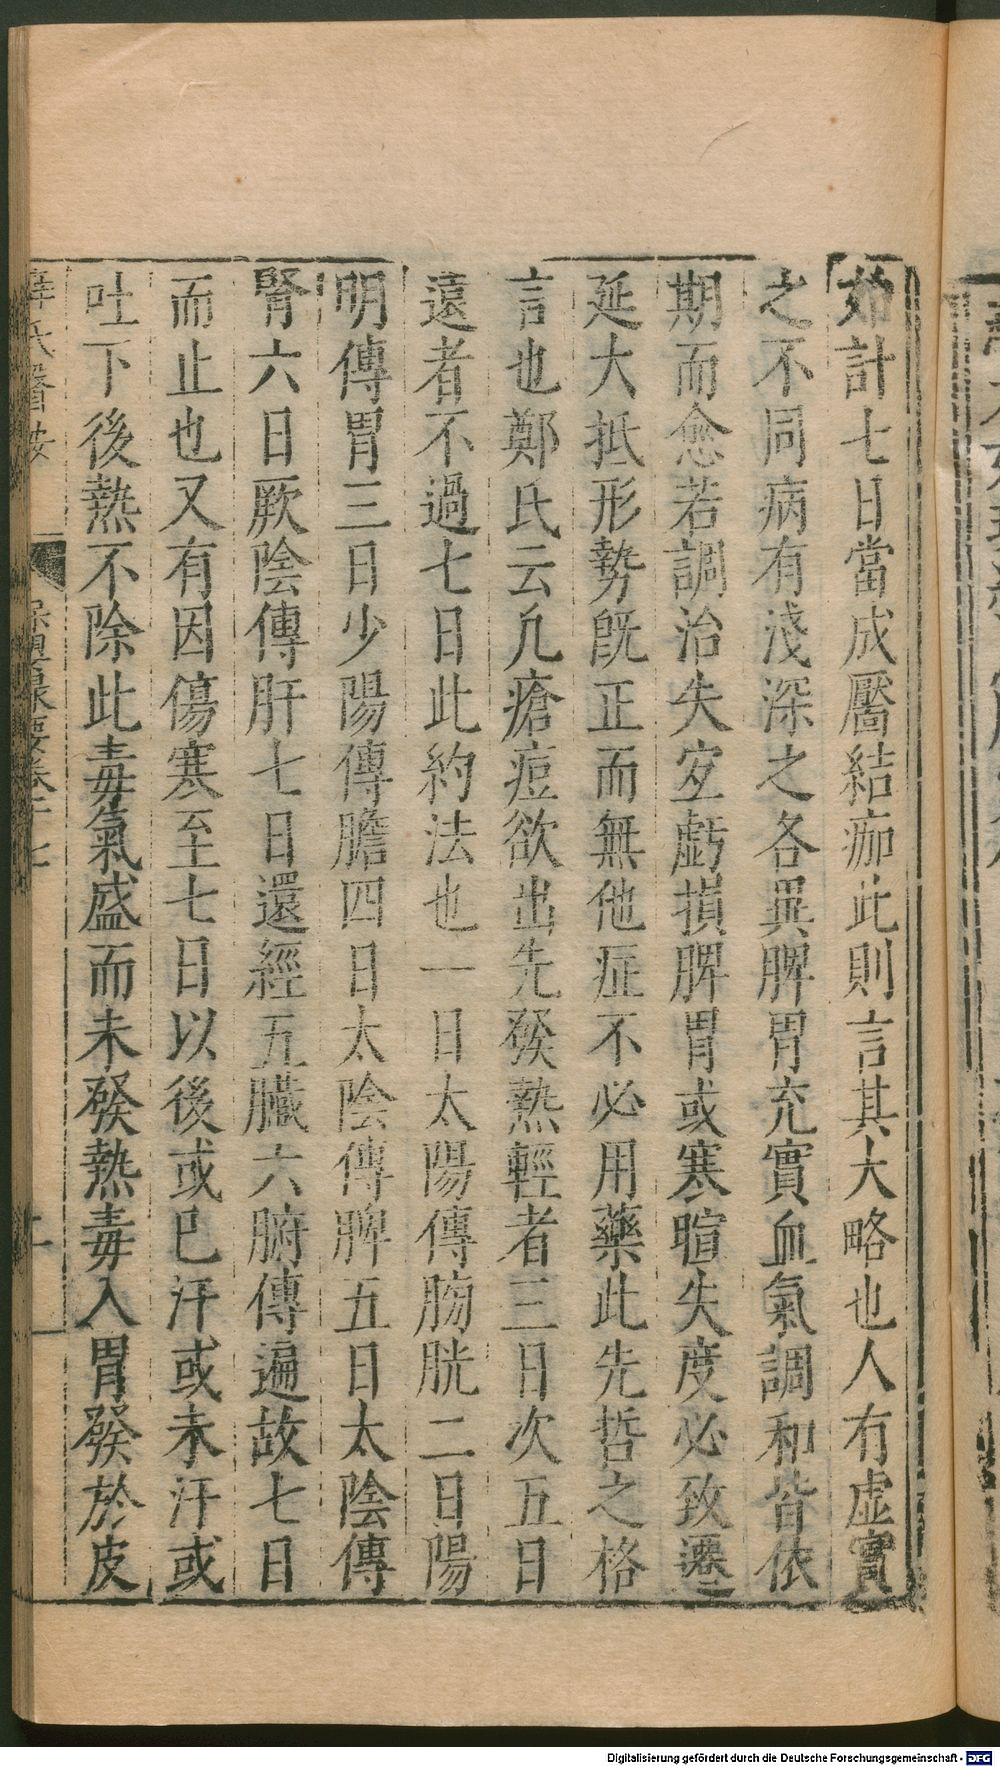 如計七日當成靨結痂此則言其大略也人有虛實
之不同病有淺深之各異脾胃充實血氣調和皆依
期而愈若調治失宜虧損脾胃或寒暄失度必致遷
延大抵形勢旣正而無他症不必用藥此先哲之格
言也鄭氏云凡瘡痘欲出先發熱輕者三日次五日
遠者不過七日此約法也一日太陽傳膀胱二日陽
明傳胃三日少陽傳膽四日太陰傳脾五日太陰傳
腎六日厥陰傳肝七日還經五臟六腑傳遍故七日
而止也又有因傷寒至七日以後或巳汗或未汗或
吐下後熱不除此毒氣盛而未發熱毒入胃發於皮
薛氏醫按 保嬰撮要卷十七 二
Digitalisierung gefördert durch die Deutsche Forschungsgemeinschaft - DFG